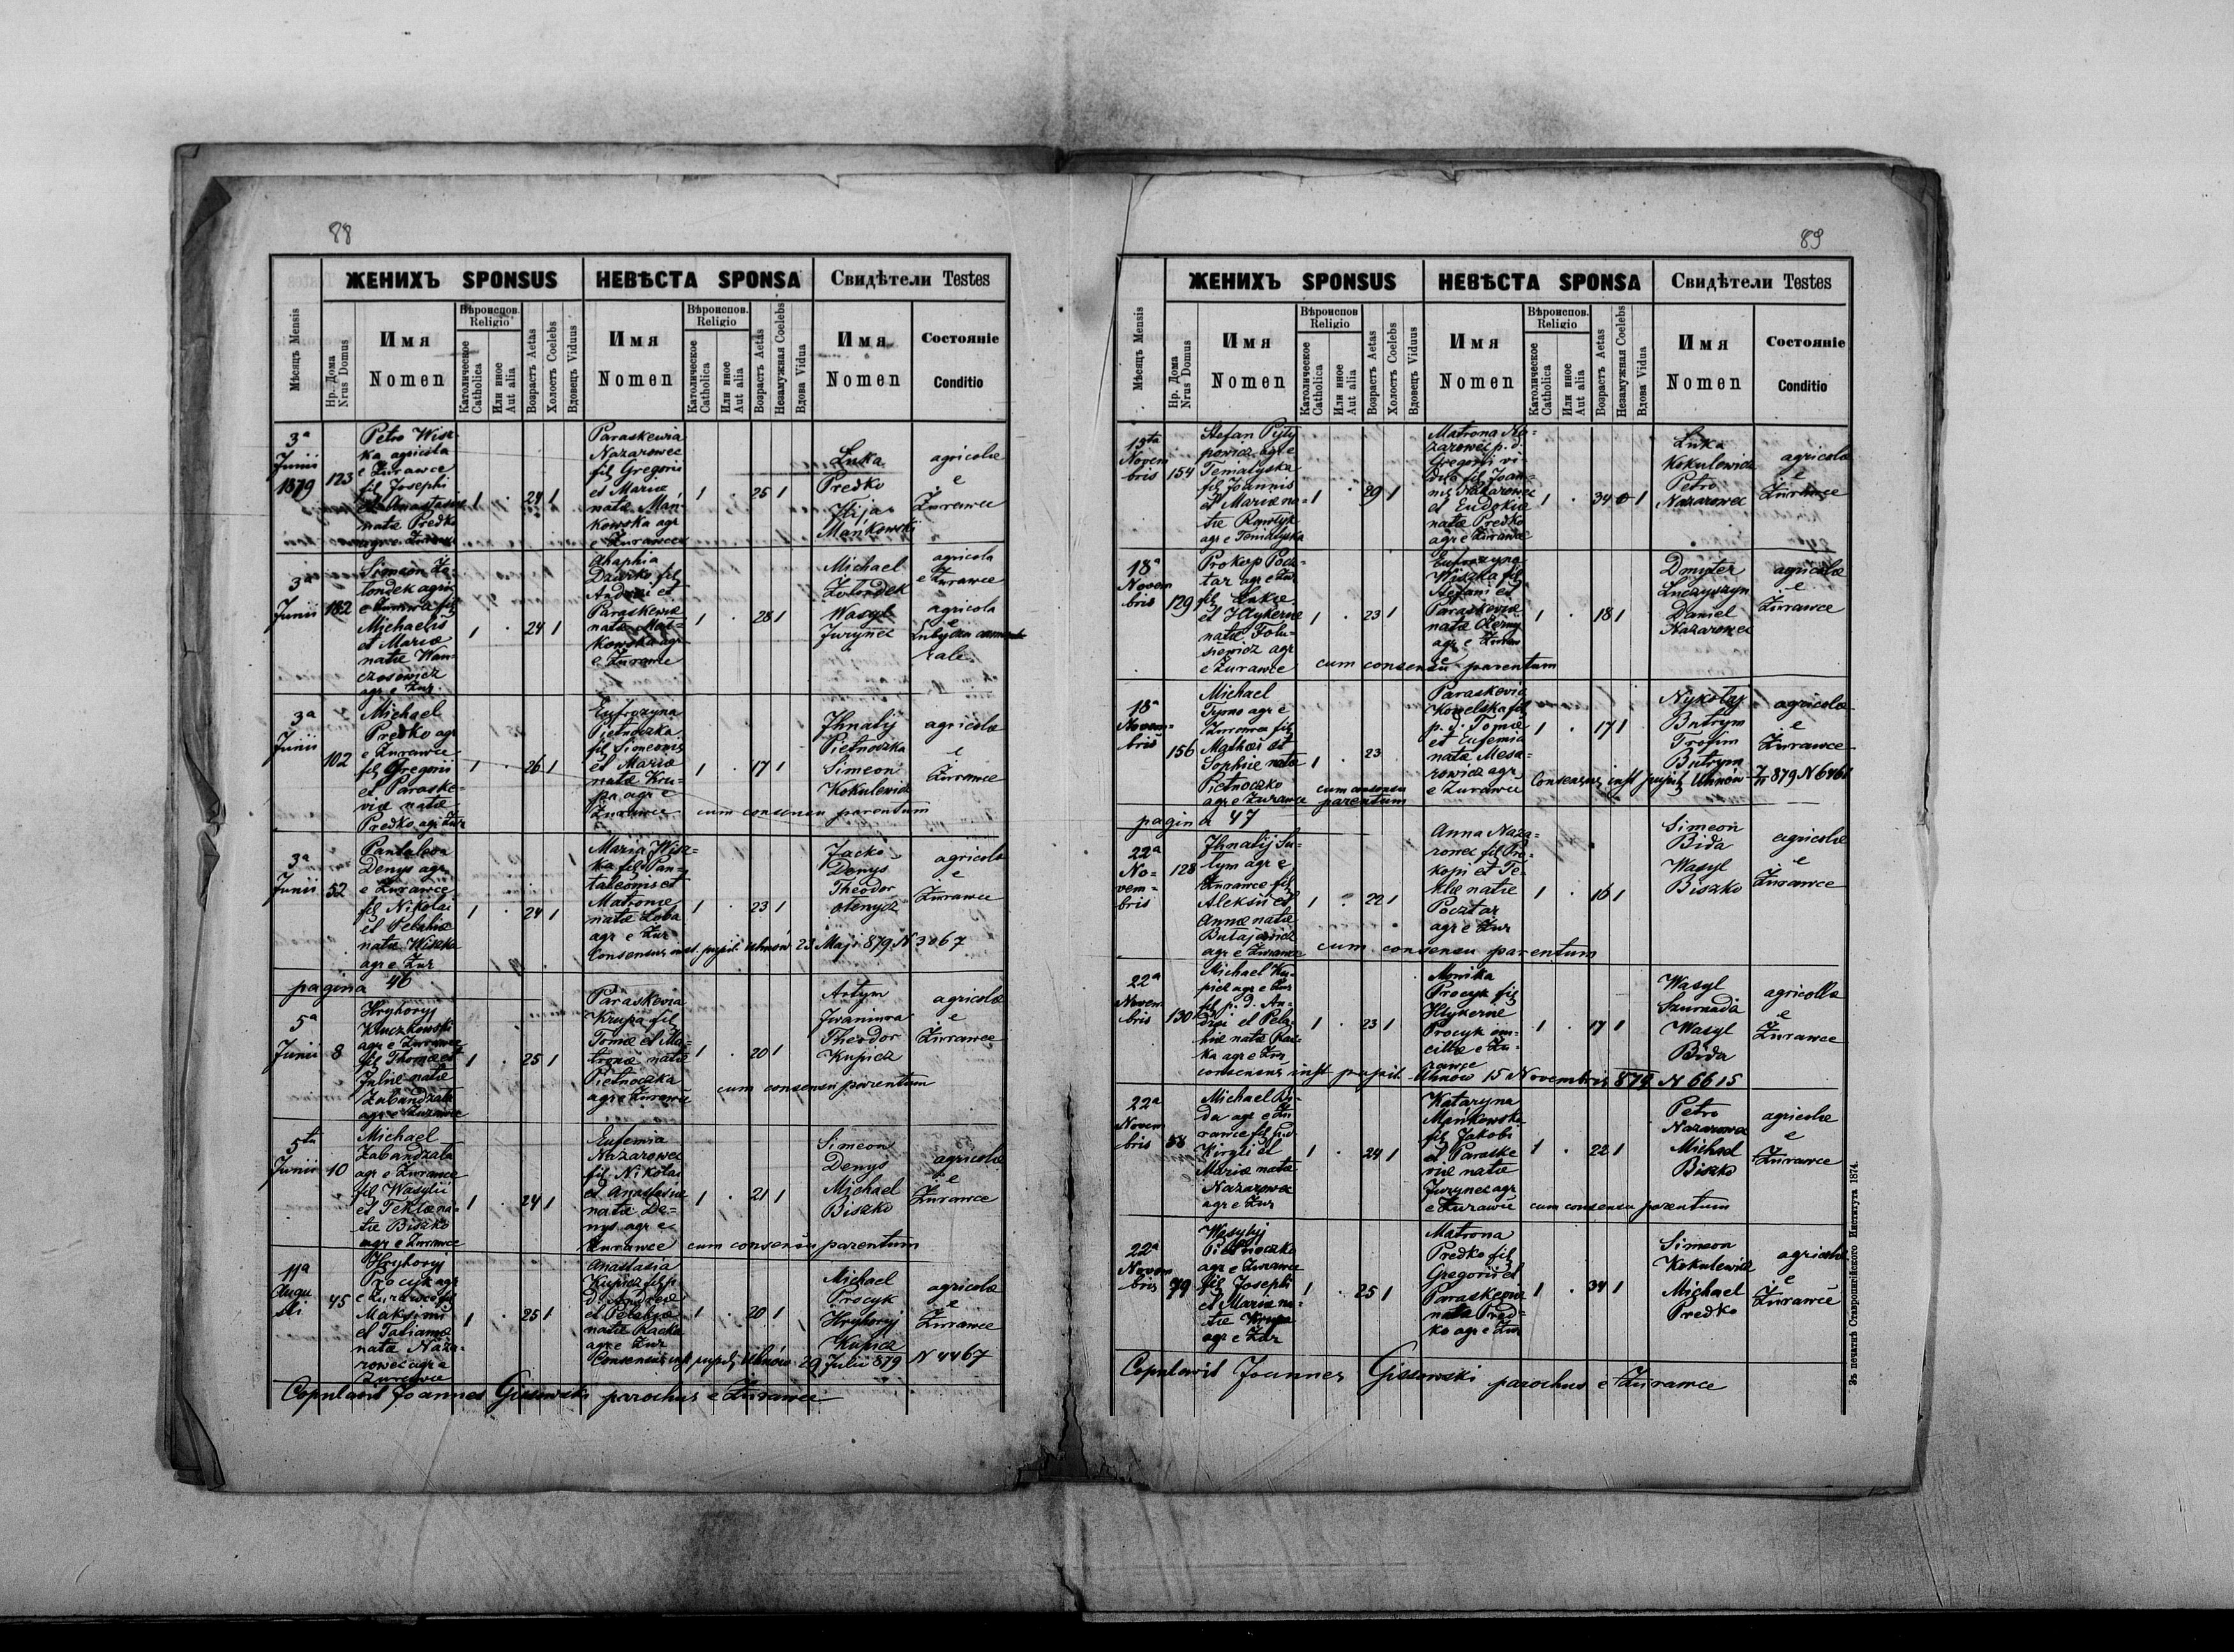 88
ЖЕНИХЪ SPONSUS
НЕВѢСТА SPONSA
Свидѣтели Testes
Мѣсяцъ Mensis
Нр. Дома
Nrus Domus
Имя
Nomen
Вѣроиспов.
Religio
Католическое
Catholica
Или иное
Aut alia
Возрастъ Aetas
Холостъ Coelebs
Вдовецъ Viduus
Имя
Nomen
Вѣроиспов.
Religio
Католическое
Catholica
Или иное
Aut alia
Возрастъ Aetas
Незамужная Coelebs
Вдова Vidua
Имя
Nomen
Состояніе
Conditio
3ª
Junii
1879
123
Petro Wisz-
ka agricola
e Żurawce
fil Josephi
et Anastasiæ
natæ Predko
agr e Żurawce
1 . 24 1
Paraskewia
Nazarowec
fil Gregorii
et Mariæ
natæ Mań-
kowska agr
e Żurawce
1 . 25 1
Luka
Predko
Ilija
Mańkowski
agricolæ
e
Żurawce
3ª
Junii
182
Simeon Żo-
londek agri
e Żurawce fil
Michaelis
et Mariæ
natæ Wan-
czosowicz
agr e Żur.
1 . 24 1
Ahaphia
Dawrko fil
Andreæ et
Paraskewiæ
natæ Mań-
kowska agr
e Żurawce
1 . 28 1
Michael
Żolondek
Wasyl
Jurynec
agricola
e Żurawce
agricola
Lubycza
rale.
3ª
Junii
102
Michael
Predko agr
e Żurawce
fil Gregorii
et Paraske-
viæ natæ
Predko agr Żur
1 . 26 1
Eufrozyna
Pietnoczka
fil Simeonis
et Mariæ
natæ Kru-
pa agr e
Żurawce cum consensu parentum
1 . 17 1
Jhnatij
Pietnoczka
Simeon
Kokulewicz
agricolæ
e
Żurawce
3ª
Junii
52
Pantaleon
Denys agr
e Żurawce
fil Nikolai
et Pelahiæ
natæ Wiszka
agr e Żur
1 . 24 1
Maria Wisz-
ka fil Pan-
taleonis et
Matronæ
natæ Łoba
agr e Żur
Consensus inst. pupil. Uhnów 23 Maji 879 N 3067
1 . 23 1
Jacko
Denys
Theodor
agricolæ
e
Żurawce
pagina 46
5ª
Junii
8
Hryhoryj
Kluczkowski
agr e Żurawce
fil Thomæ et
Juliæ natæ
Zabandżala
agr e Żurawce
1 . 25 1
Paraskevia
Krupa fil
Tomæ et Ma-
tronæ natæ
Pietnoczka
agr e Żurawce
cum consensu parentum
1 . 20 1
Artym
Theodor
Kupicz
agricolæ
e
Żurawce
5ta
Junii
10
Michael
Zabandżala
agr e Żurawce
fil Wasylii
et Teklæ na-
tæ Biszko
agr e Żurawce
1 . 24 1
Eufemia
Nazarowec
fil Nikolai
et Anastasiæ
natæ De-
nys agr e
Żurawce cum consensu parentum
1 . 21 1
Simeon
Denys
Michael
Biszko
agricolæ
e
Żurawce
11ª
Augu
sti
45
Hryhoryj
Procyk agr
e Żurawce fil
Maksimi
et Tatianæ
natæ Naza-
rowec agr e
Żurawce
1 . 25 1
Anastasia
Kupicz fil p
d. Andreæ
et Pelahiæ
natæ Racka
agr e Żur
Consensus inst pupil Uhnów 29 Julii 879 N 4467
1 . 20 1
Michael
Procyk
Hryhoryj
Kupicz
agricolæ
e
Żurawce
Copulavit Joannes Gissowski parochus e Żurawce
89
ЖЕНИХЪ SPONSUS
НЕВѢСТА SPONSA
Свидѣтели Testes
Мѣсяцъ Mensis
Нр. Дома
Nrus Domus
Имя
Nomen
Вѣроиспов
Religio
Католическое
Catholica
Или иное
Aut alia
Возрастъ Aetas
Холостъ Coelebs
Вдовецъ Viduus
Имя
Nomen
Вѣроиспов.
Religio
Католическое
Catholica
Или иное
Aut alia
Возрастъ Aetas
Незамужная Coelebs
Вдова Vidua
Имя
Nomen
Состояніе
Conditio
Novem
bris
154
Stefan Pyly
powicz agr e
Tematyska
fil Joannis
et Mariæ na-
tæ
agr e Tematyska
1 . 29 1
Matrona Na-
zarowec p. d.
Gregorii vi-
dua fil Joan-
nis Nazarowec
et Eudokiæ
natæ Predko
agr e Żurawce
1 . 34 0 1
Luka
Kokulewicz
Petro
Nazarowec
agricolæ
e
Żurawce
18ª
Novem
bris
129
Prokop Pocz-
tar agr e Żur
fil Lukæ
et Hlykeriæ
natæ Folu-
siewicz agr
e Żurawce cum consensu parentum
1 . 23 1
Eufrozyna
Wiszka fil
Stefani et
Paraskeviæ
natæ
agr e Żuraw
e
1 . 18 1
Dmyter
Luczyszyn
Daniel
Nazarowec
agricolæ
e
Żurawce
18ª
Novem-
bris
156
Michael
Tymo agr e
Żurawce fil
Mathei et
Sophiæ natæ
Pietnoczko
agr e Żurawce
1 . 23
cum consensu
parentum
Paraskevia
Kowelska fil
p. d. Tomæ
et Eufemiæ
natæ Mosa-
rowicz agr
e Żurawce
1 . 17 1
Consensus inst pupil Uhnów 879 N 6461
Nykolaj
Butrym
Trofim
Butrym
agricolæ
e
Żurawce
pagina 47
22ª
No-
vem-
bris
128
Jhnatij Su-
lym agr e
Żurawce fil
Aleksii et
Annæ natæ
agr e Żurawce
1 . 22 1
Anna Naza-
rowec fil Pro-
kopi et Te-
klæ natæ
Pocztar
agr e Żur
cum consensu parentum
1 . 16 1
Simeon
Bida
Wasyl
Biszko
agricolæ
e
Żurawce
22ª
Novem
bris
130
Michael Ku-
picz agr e Żur
fil p. d. An-
drei et Pela-
hiæ natæ Rac-
ka agr e Żur
1 . 23 1
Monika
Procyk fil
Hlykeriæ
Procyk an-
cillæ e Żu-
rawce
consensus inst pupil. Uhnów 15 Novembris 879 N 6615
1 . 17 1
Wasyl
Szurmada
Wasyl
Bida
agricolæ
e
Żurawce
22ª
Novem
bris
58
Michael Bi-
da agr e Żu
rawce fil p. d
Kiryli et
Mariæ natæ
Nazarowec
agr e Żur
1 . 24 1
Kataryna
Mańkowska
fil Jakobi
et Paraske
viæ natæ
Jurynec agr
e Żurawce cum consensu parentum
1 . 22 1
Petro
Nazarowec
Michael
Biszko
agricolæ
e
Żurawce
22ª
Novem
bris
79
Wasylij
Pietnoczko
agr e Żurawce
fil Josephi
et Mariæ na-
tæ Krupa
agr e Żur
1 . 25 1
Matrona
Predko fil
Gregorii et
Paraskeviæ
nata Pred-
ko agr e Żur
1 . 34 1
Simeon
Kokulewicz
Michael
Predko
agricolæ
e
Żurawce
Copulavit Joannes Gissowski parochus e Żurawce
Зъ печатнѣ Ставропигійского Института 1874.